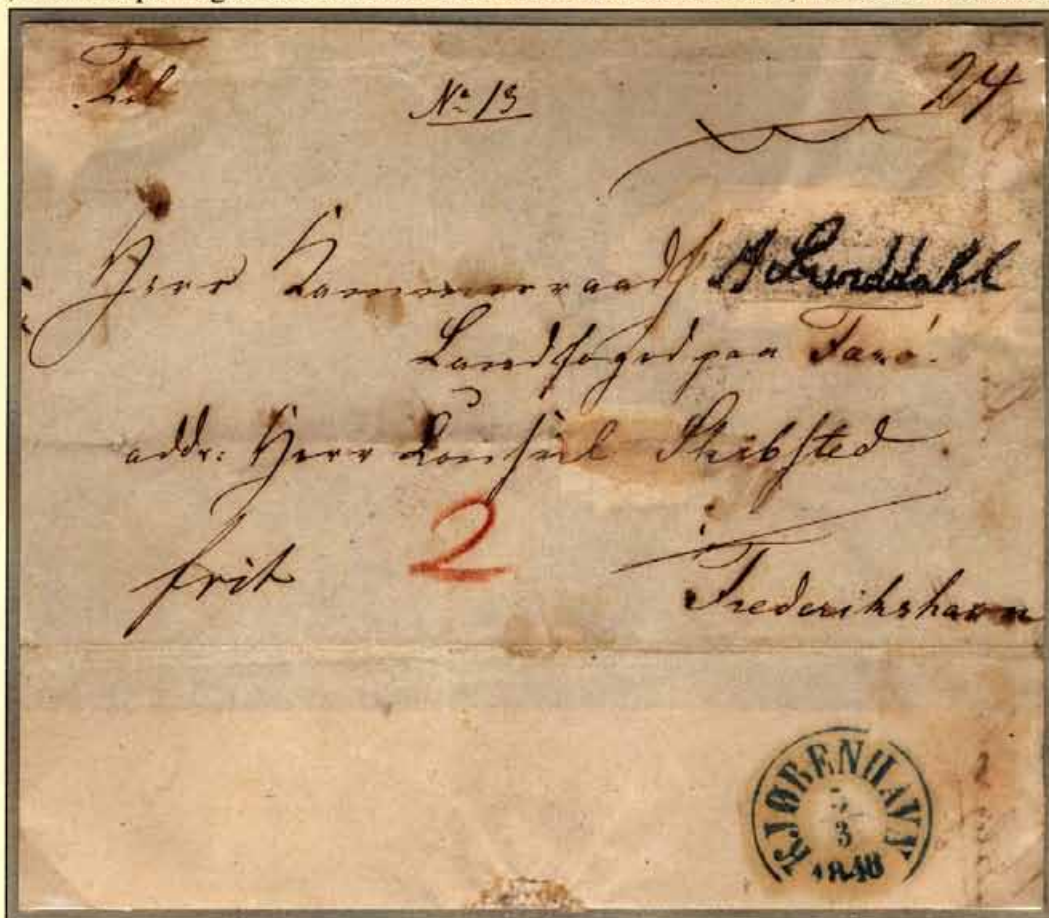 Til
No 13
24
Herr Kammerraad H Lunddahl
Landfoged paa Færö.
addr: Herr Consul Skibsted
frit 2
Frederikshavn
KJØBENHAVN
3
1848